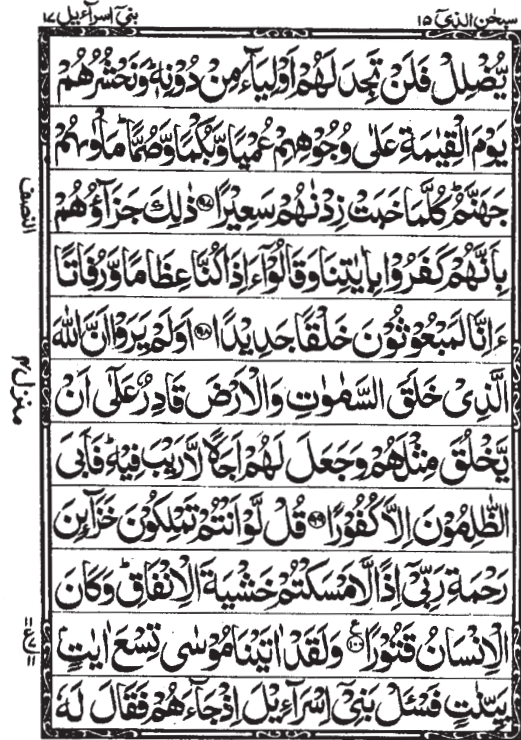 سبحٰن الذیٓ ١٥
بنیٓ اسرآءیل ١٧
یُّضْلِلْ فَلَنْ تَجِدَ لَهُمْ اَوْلِیَآءَ مِنْ دُوْنِهٖ ؕ وَنَحْشُرُهُمْ
یَوْمَ الْقِیٰمَةِ عَلٰی وُجُوْهِهِمْ عُمْیًا وَّبُكْمًا وَّصُمًّا ؕ مَاْوٰىهُمْ
جَهَنَّمُ ؕ كُلَّمَا خَبَتْ زِدْنٰهُمْ سَعِیْرًا ﴿۹۷﴾ ذٰلِكَ جَزَآؤُهُمْ
بِاَنَّهُمْ كَفَرُوْا بِاٰیٰتِنَا وَقَالُوْٓا ءَاِذَا كُنَّا عِظَامًا وَّرُفَاتًا
ءَاِنَّا لَمَبْعُوْثُوْنَ خَلْقًا جَدِیْدًا ﴿۹۸﴾ اَوَلَمْ یَرَوْا اَنَّ اللّٰهَ
الَّذِیْ خَلَقَ السَّمٰوٰتِ وَالْاَرْضَ قَادِرٌ عَلٰٓی اَنْ
یَّخْلُقَ مِثْلَهُمْ وَجَعَلَ لَهُمْ اَجَلًا لَّا رَیْبَ فِیْهِ ؕ فَاَبَی
الظّٰلِمُوْنَ اِلَّا كُفُوْرًا ﴿۹۹﴾ قُلْ لَّوْ اَنْتُمْ تَمْلِكُوْنَ خَزَآىِٕنَ
رَحْمَةِ رَبِّیْٓ اِذًا لَّاَمْسَكْتُمْ خَشْیَةَ الْاِنْفَاقِ ؕ وَكَانَ
الْاِنْسَانُ قَتُوْرًا ﴿۱۰۰﴾ ع وَلَقَدْ اٰتَیْنَا مُوْسٰی تِسْعَ اٰیٰتٍۭ
بَیِّنٰتٍ فَسْـَٔلْ بَنِیْٓ اِسْرَآءِیْلَ اِذْ جَآءَهُمْ فَقَالَ لَهٗ
النصف
منزل ۴